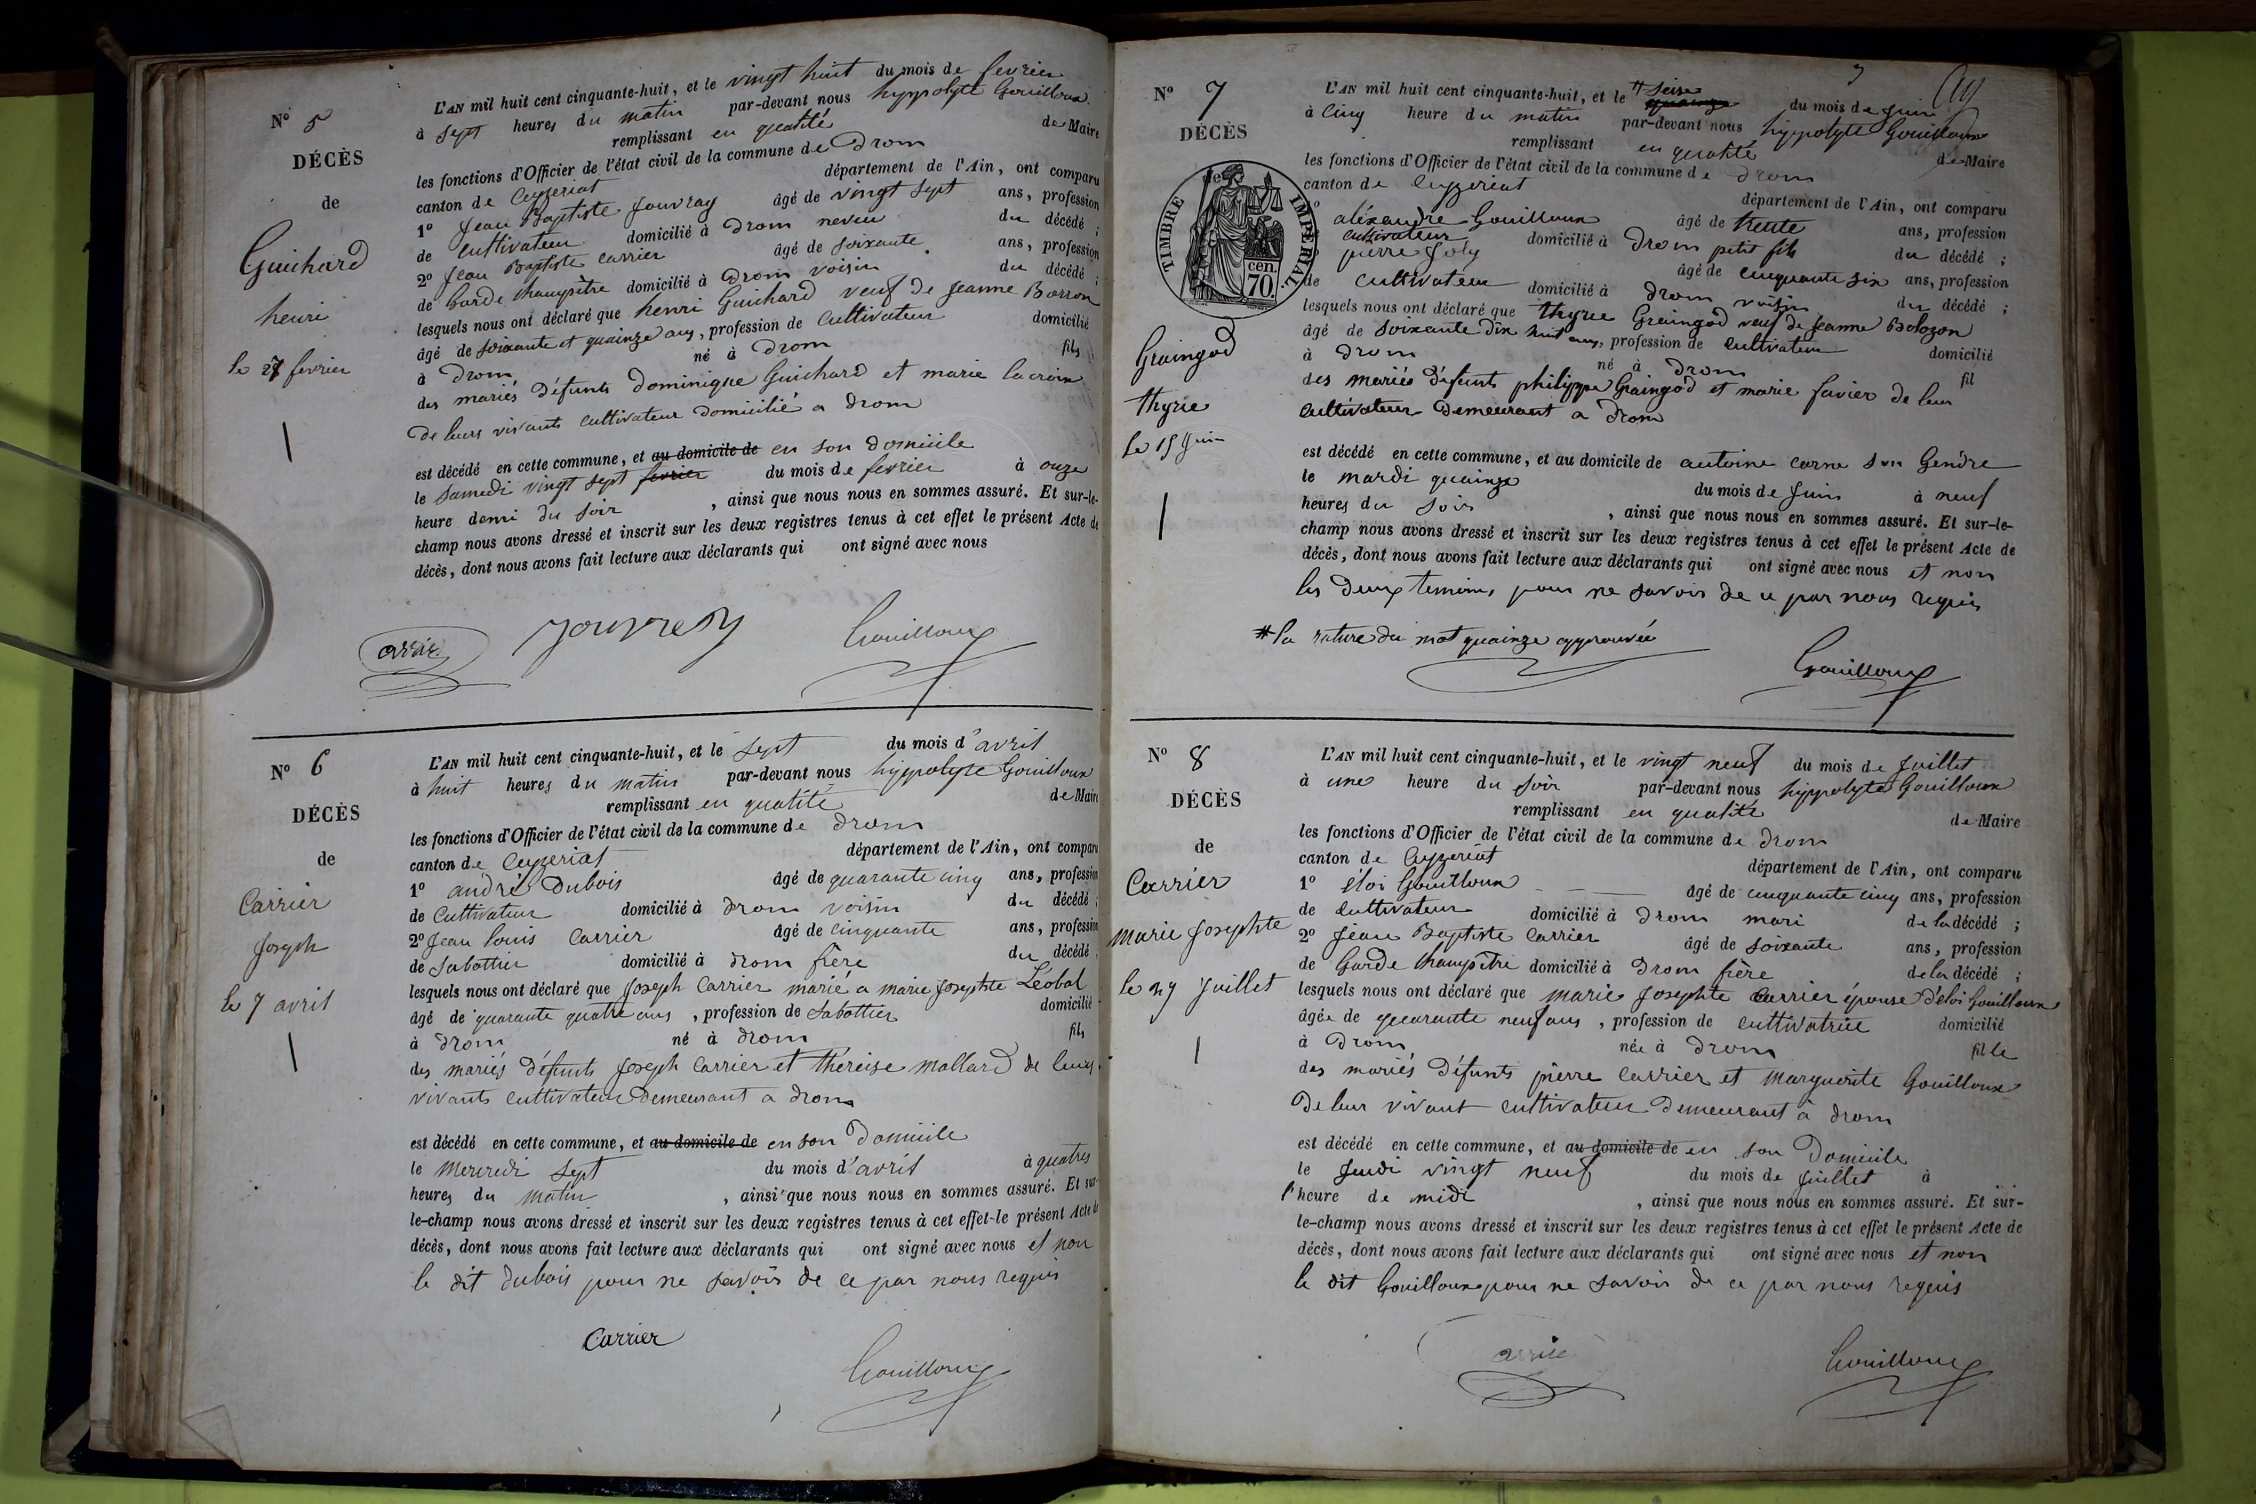 N° 5
DÉCÈS
de
Guichard
henri
le 27 fevrier
L'AN mil huit cent cinquante-huit, et le vingt huit du mois de fevrier
à sept heures du matin par-devant nous hyppolyte Gouilloux
remplissant en qualité de Maire
les fonctions d'Officier de l'état civil de la commune de Drom
canton de Ceyzeriat département de l'Ain, ont comparu
1° Jean Baptiste Jouvray âgé de vingt sept ans, profession
de cultivateur domicilié à Drom neveu du décédé ;
2° Jean Baptiste Carrier âgé de soixante ans, profession
de Garde Champêtre domicilié à Drom voisin du décédé ;
lesquels nous ont déclaré que henri Guichard veuf de Jeanne Borron
âgé de soixante et quainze ans, profession de Cultivateur domicilié
à Drom né à Drom fils
des mariés Défunts Dominique Guichard et marie lacroix
De leurs vivants cultivateur Domicilié a Drom
est décédé en cette commune, et au domicile de en son Domicile
le Samedi vingt sept fevrier du mois de fevrier à onze
heure demi du soir , ainsi que nous nous en sommes assuré. Et sur-le-
champ nous avons dressé et inscrit sur les deux registres tenus à cet effet le présent Acte de
décès, dont nous avons fait lecture aux déclarants qui ont signé avec nous
Jouvray
Gouilloux
N° 6
DÉCÈS
de
Carrier
Joseph
le 7 avril
L'AN mil huit cent cinquante-huit, et le sept du mois d'avril
à huit heures du matin par-devant nous hippolyte Gouilloux
remplissant en qualité de Maire
les fonctions d'Officier de l'état civil de la commune de Drom
canton de Ceyzeriat département de l'Ain, ont comparu
1° andré Dubois âgé de quarante cinq ans, profession
de Cultivateur domicilié à Drom voisin du décédé ;
2° Jean louis Carrier âgé de cinquante ans, profession
de Sabottier domicilié à Drom frère du décédé
lesquels nous ont déclaré que Joseph Carrier marié a marie Josephte Léobal
âgé de quarante quatre ans , profession de Sabottier domicilié
à Drom né à Drom fils
des mariés Défunts Joseph Carrier et théreise Mallard de leurs
vivants cultivateur Demeurant a Drom
est décédé en cette commune, et au domicile de en son Domicile
le Mercredi sept du mois d'avril à quatres
heures du matin , ainsi que nous nous en sommes assuré. Et sur-
le-champ nous avons dressé et inscrit sur les deux registres tenus à cet effet le présent Acte de
décès, dont nous avons fait lecture aux déclarants qui ont signé avec nous et non
le dit Dubois pour ne savoir de ce par nous requis
Carrier
Gouilloux
7
N° 7
DÉCÈS
de
TIMBRE IMPÉRIAL
70 cen.
Graingod
thyrse
le 15 Juin
L'AN mil huit cent cinquante-huit, et le # seize quainze du mois de Juin
à Cinq heure du matin par-devant nous hyppolyte Gouilloux
remplissant en qualité de Maire
les fonctions d'Officier de l'état civil de la commune de Drom
canton de Ceyzeriat département de l'Ain, ont comparu
alexandre Gouilloux âgé de trente ans, profession
cultivateur domicilié à Drom petit fils du décédé ;
pierre Joly âgé de cinquante six ans, profession
de cultivateur domicilié à Drom voisin du décédé ;
lesquels nous ont déclaré que thyrse Graingod veuf de Jeanne Bolozon
âgé de soixante dix huit ans, profession de cultivateur domicilié
à Drom né à Drom fil
des mariés Défunts philippe Graingod et marie favier de leur
cultivateur Demeurant a Drom
est décédé en cette commune, et au domicile de antoine Carne son Gendre
le mardi quainze du mois de Juin à neuf
heures du soir , ainsi que nous nous en sommes assuré. Et sur-le-
champ nous avons dressé et inscrit sur les deux registres tenus à cet effet le présent Acte de
décès, dont nous avons fait lecture aux déclarants qui ont signé avec nous et non
les Deux temoins pour ne savoir de ce par nous requis
# la rature du mot quainze approuvée
Gouilloux
N° 8
DÉCÈS
de
Carrier
marie Josephte
le 29 Juillet
L'AN mil huit cent cinquante-huit, et le vingt neuf du mois de Juillet
à une heure du soir par-devant nous hippolyte Gouilloux
remplissant en qualité de Maire
les fonctions d'Officier de l'état civil de la commune de Drom
canton de Ceyzeriat département de l'Ain, ont comparu
1° éloi Gouilloux âgé de cinquante cinq ans, profession
de cultivateur domicilié à Drom mari de la décédé ;
2° Jean Baptiste Carrier âgé de soixante ans, profession
de Garde Champêtre domicilié à Drom frère de la décédé ;
lesquels nous ont déclaré que marie Josephte Carrier épouse d'éloi Gouilloux
âgée de quarante neuf ans , profession de cultivatrice domicilié
à Drom née à Drom fille
des mariés Défunts pierre Carrier et Marguerite Gouilloux
De leur vivant cultivateur Demeurant à Drom
est décédé en cette commune, et au domicile de en son Domicile
le Jeudi vingt neuf du mois de Juillet à
l'heure de midi , ainsi que nous nous en sommes assuré. Et sur-
le-champ nous avons dressé et inscrit sur les deux registres tenus à cet effet le présent Acte de
décès, dont nous avons fait lecture aux déclarants qui ont signé avec nous et non
le dit Gouilloux pour ne savoir de ce par nous requis
Gouilloux